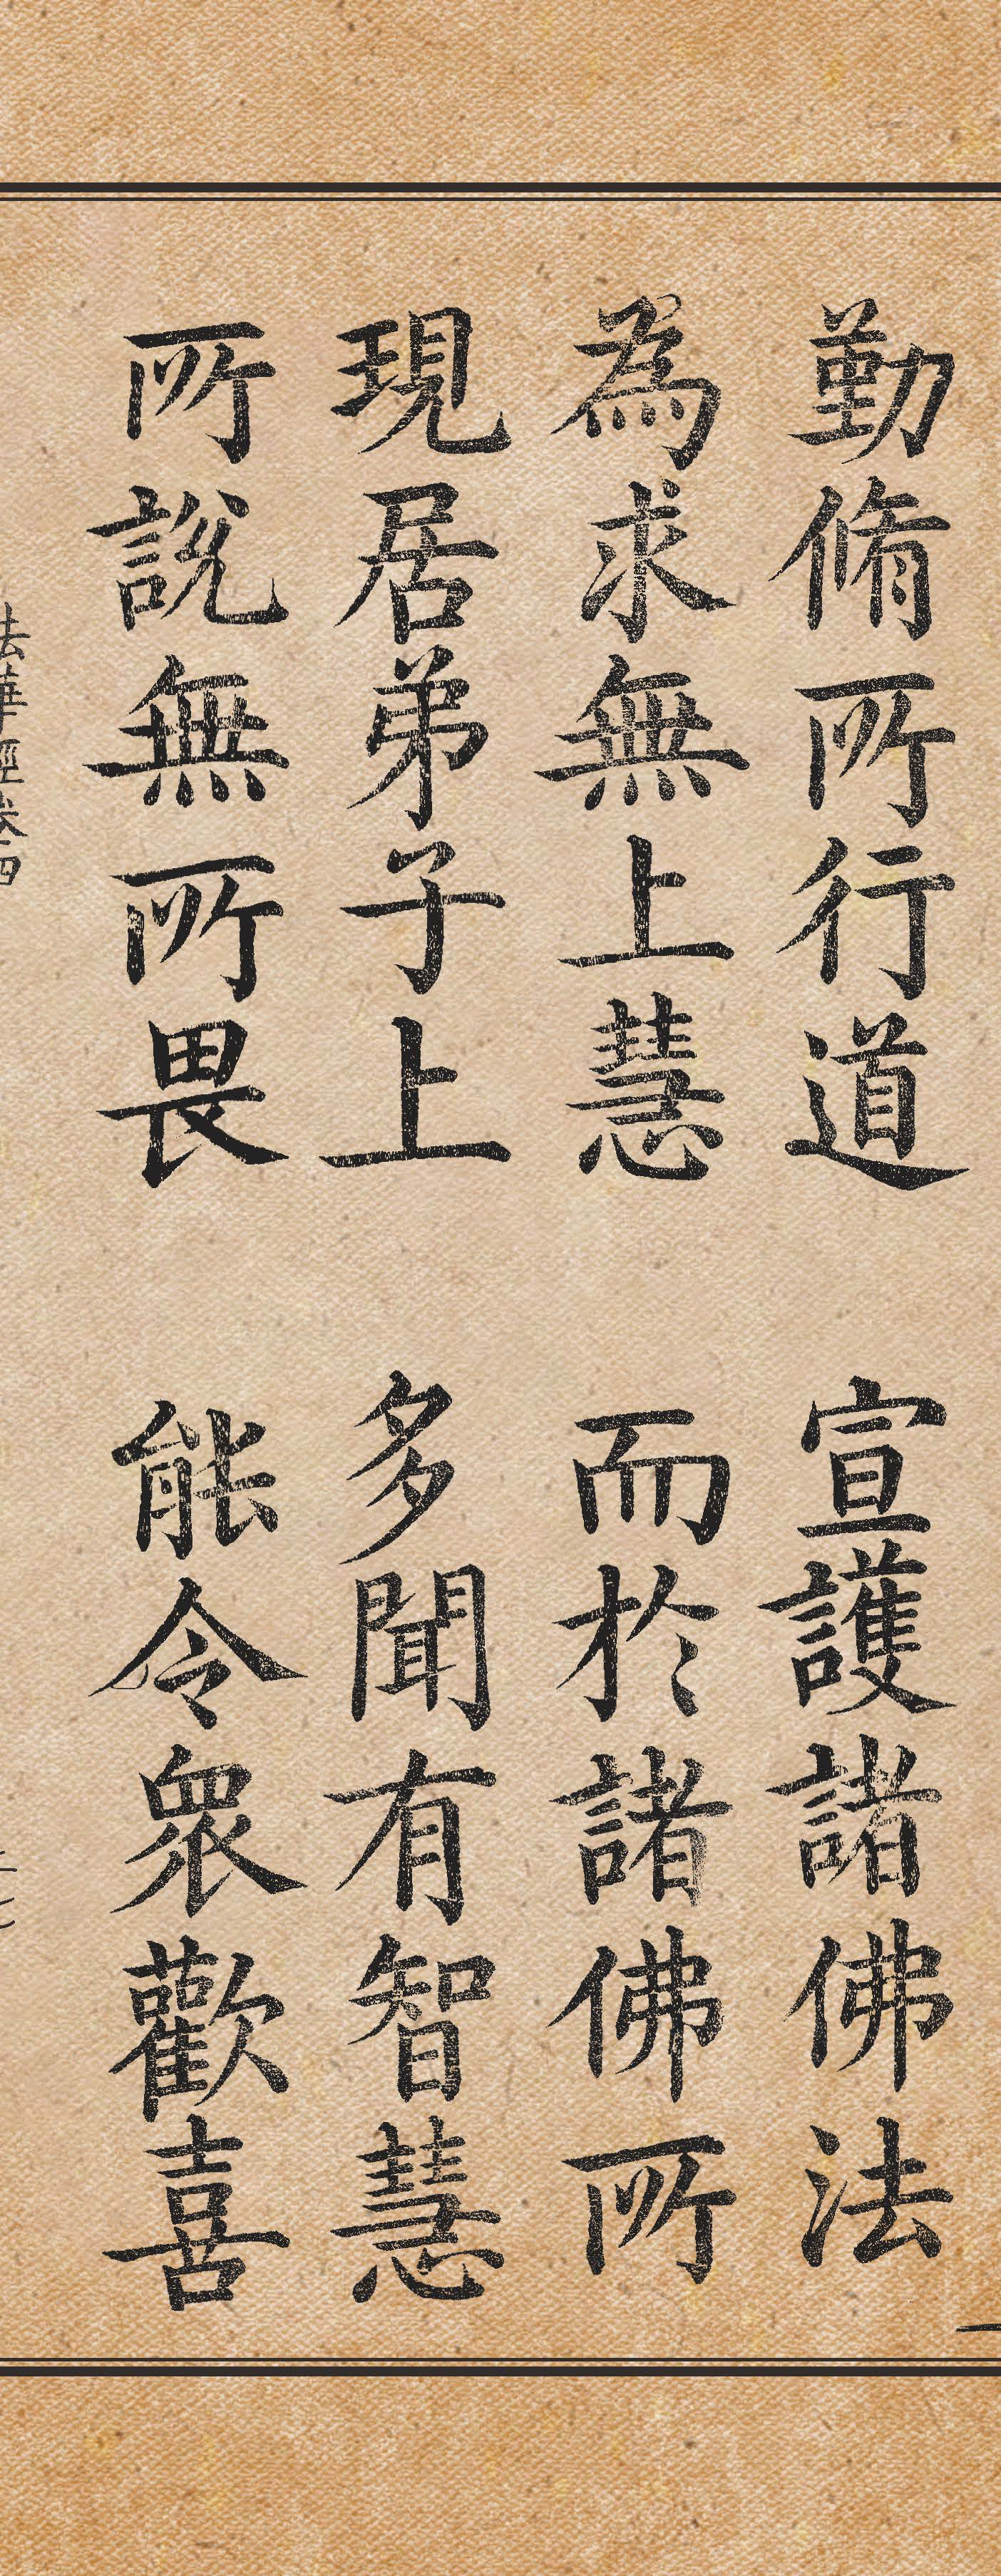 勤脩所行道 宣護諸佛法
為求無上慧 而於諸佛所
現居弟子上 多聞有智慧
所說無所畏 能令眾歡喜
法華經卷四